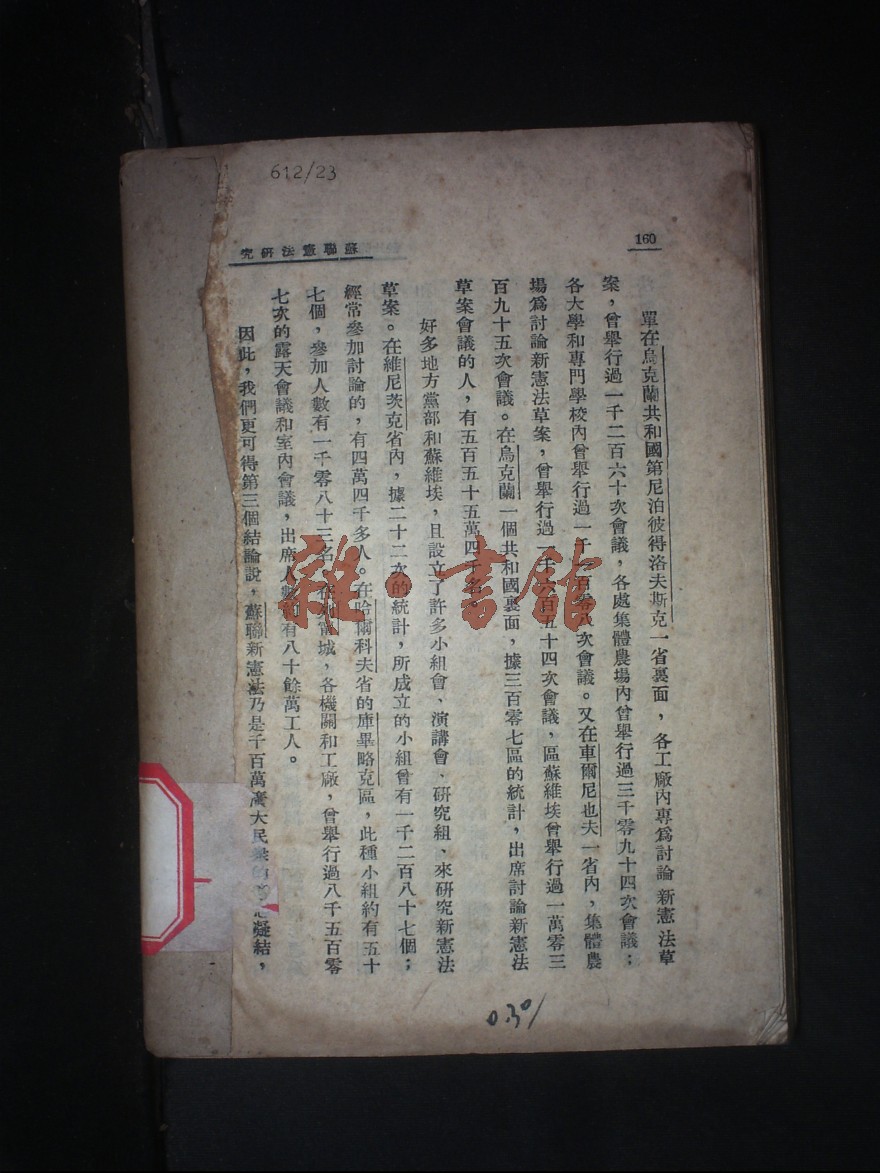 612/23
160
蘇聯憲法研究
單在烏克蘭共和國第尼泊彼得洛夫斯克一省裏面，各工廠內專爲討論新憲法草
案，曾舉行過一千二百六十次會議，各處集體農場內曾舉行過三千零九十四次會議；
各大學和專門學校內曾舉行過一千一百零八次會議。又在車爾尼也夫一省內，集體農
場爲討論新憲法草案，曾舉行過一千六百五十四次會議，區蘇維埃曾舉行過一萬零三
百九十五次會議。在烏克蘭一個共和國裏面，據三百零七區的統計，出席討論新憲法
草案會議的人，有五百五十五萬四千名。
好多地方黨部和蘇維埃，且設立了許多小組會、演講會、研究組、來研究新憲法
草案。在維尼茨克省內，據二十二次的統計，所成立的小組曾有一千二百八十七個；
經常參加討論的，有四萬四千多人。在哈爾科夫省的庫畢略克區，此種小組約有五十
七個，參加人數有一千零八十三名。在列寧城，各機關和工廠，曾舉行過八千五百零
七次的露天會議和室內會議，出席人數約有八十餘萬工人。
因此，我們更可得第三個結論說，蘇聯新憲法乃是千百萬廣大民衆的凝結，
0.30/
雜·書館